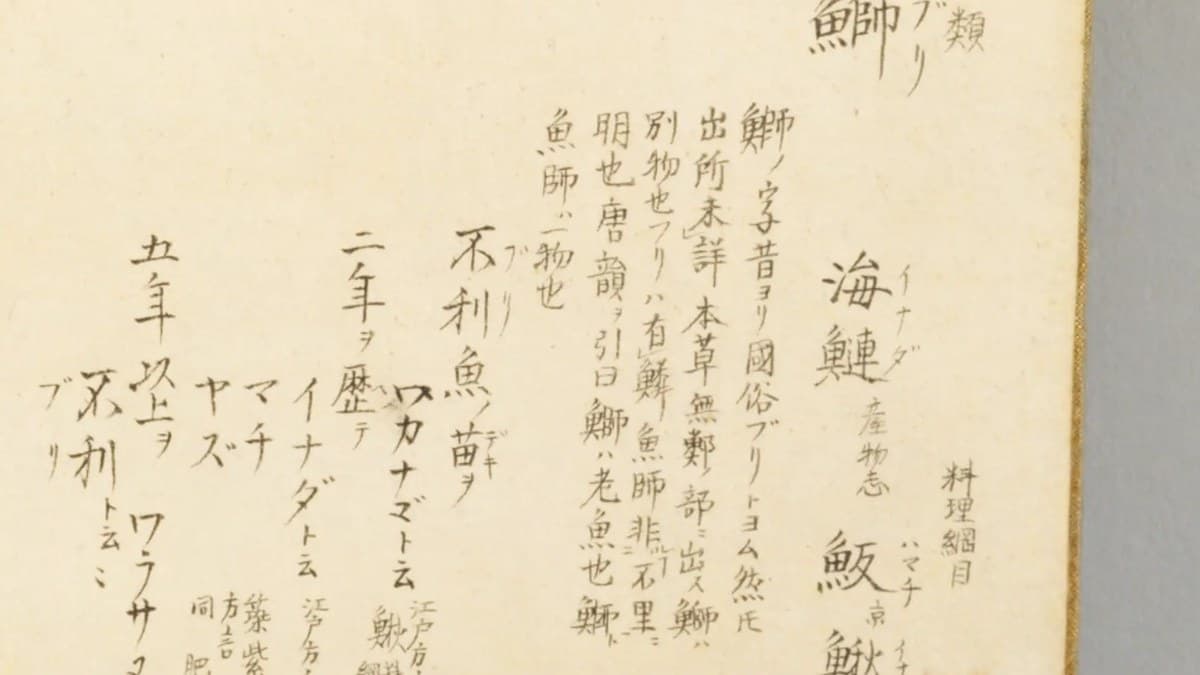 類
鰤 ブリ
料理綱目
海鰱 イナダ 産物志 鰒 ハマチ 京 鰍
鰤ノ字昔ヨリ國俗ブリトヨム然トモ
出所未詳本草無鄰ノ部ニ出ス鰤ハ
別物也ブリハ有鱗魚師非
明也唐韻ヲ引曰鰤ハ老魚也鰤ト
魚師ハ一物也
不利魚ノ苗ヲ ブリ デキ
ワカナマト云 江戸方
二年ヲ歴テ
イナダト云 江戸方
マチ 築紫方言
ヤズ 同 肥
五年以上ヲ ワラサ
不利ト云 ブリ